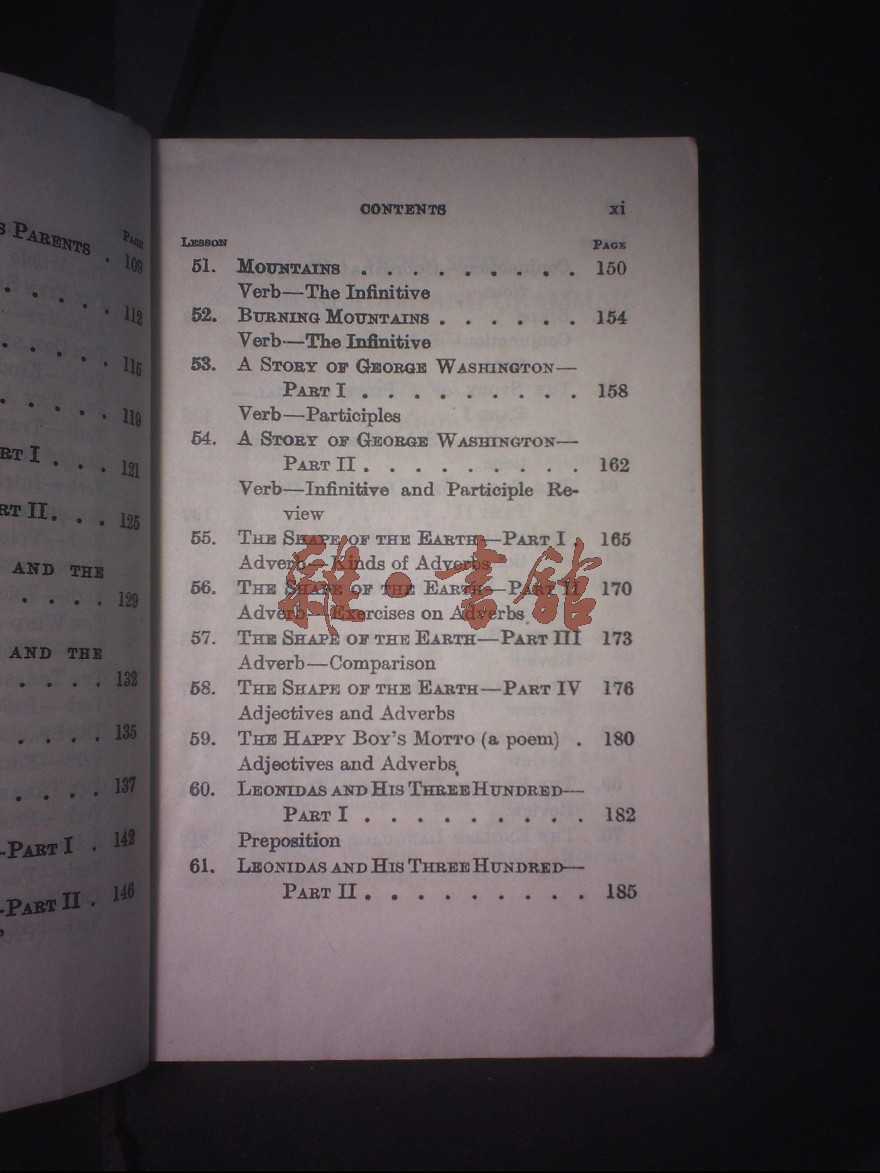 S PARENTS .
PAGE
109
. . . . . 112
. . . . 115
. . . . . 119
RT I . . . 121
RT II. . . 125
AND THE
. . . . 129
AND THE
. . . . 132
. . . . 135
. . . . 137
-PART I . 142
-PART II . 146
CONTENTS xi
LESSON PAGE
51. MOUNTAINS . . . . . . . . . 150
Verb—The Infinitive
52. BURNING MOUNTAINS . . . . . . 154
Verb—The Infinitive
53. A STORY OF GEORGE WASHINGTON—
PART I . . . . . . . . . 158
Verb—Participles
54. A STORY OF GEORGE WASHINGTON—
PART II . . . . . . . . . 162
Verb—Infinitive and Participle Re-
view
55. THE SHAPE OF THE EARTH—PART I . 165
Adverb—Kinds of Adverbs
56. THE SHAPE OF THE EARTH—PART II 170
Adverb—Exercises on Adverbs
57. THE SHAPE OF THE EARTH—PART III 173
Adverb—Comparison
58. THE SHAPE OF THE EARTH—PART IV 176
Adjectives and Adverbs
59. THE HAPPY BOY'S MOTTO (a poem) . 180
Adjectives and Adverbs
60. LEONIDAS AND HIS THREE HUNDRED—
PART I . . . . . . . . . 182
Preposition
61. LEONIDAS AND HIS THREE HUNDRED—
PART II . . . . . . . . . 185
雜·書館